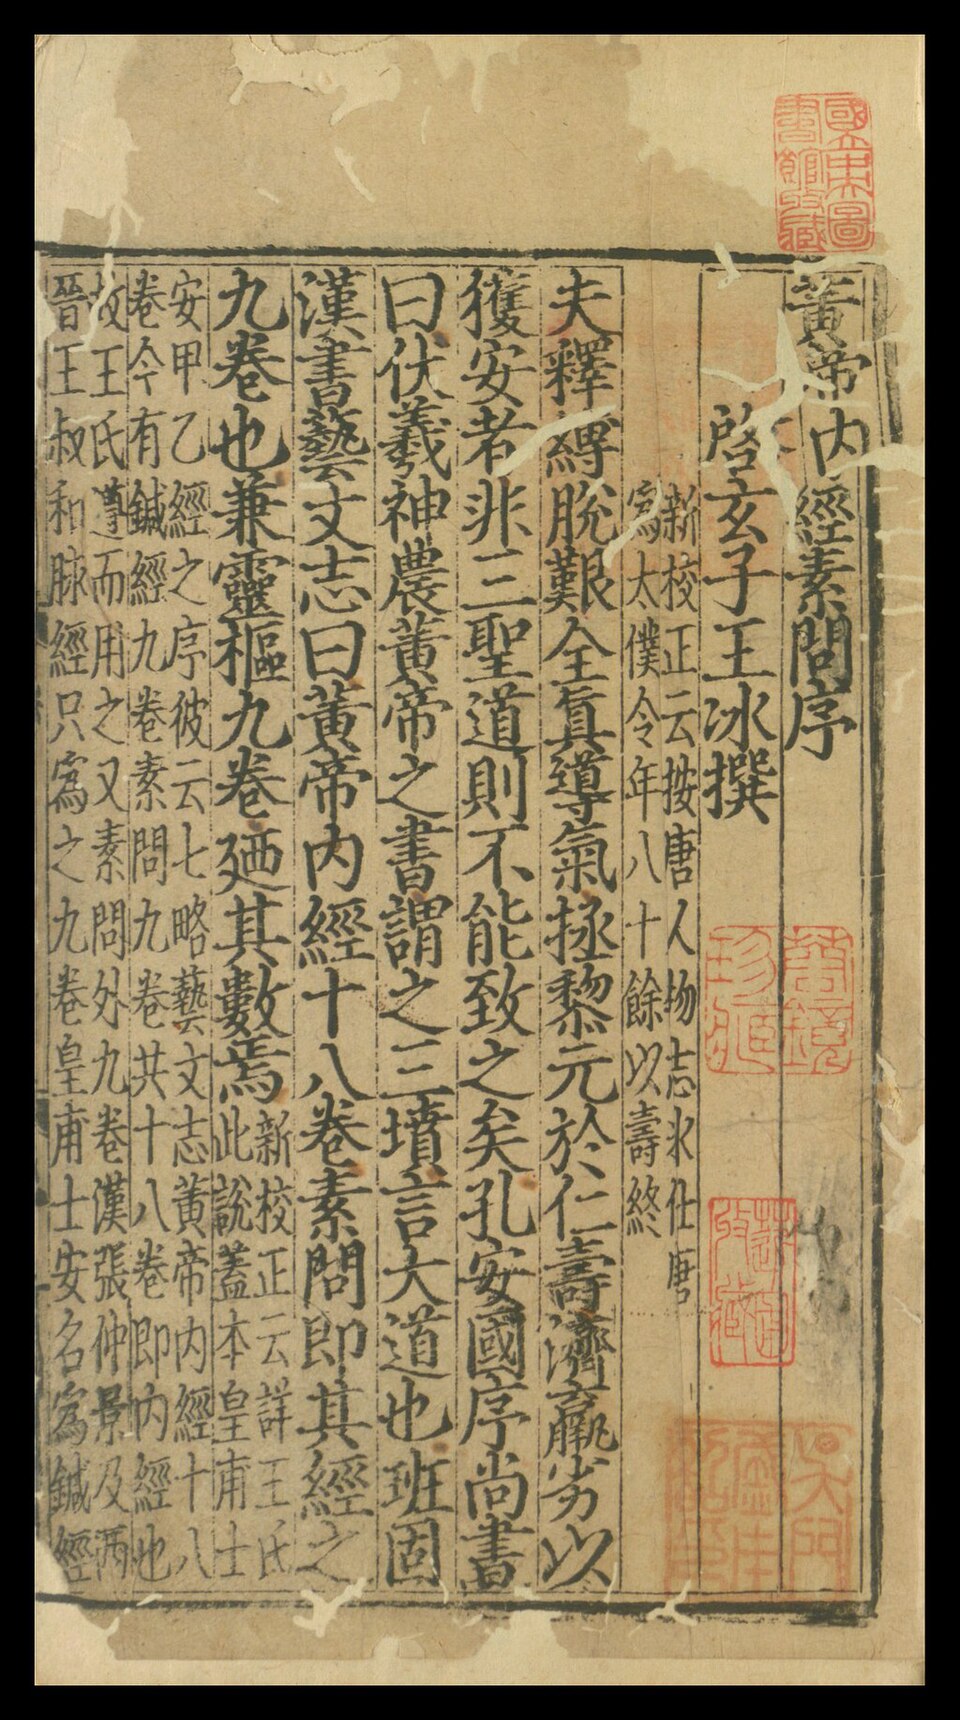 國立中央圖
書館收藏
黃帝内經素問序
啓玄子王冰撰
新校正云按唐人物志冰仕唐
爲太僕令年八十餘以壽終
夫釋縛脫艱全眞導氣拯黎元於仁壽濟羸劣以
獲安者非三聖道則不能致之矣孔安國序尚書
曰伏羲神農黃帝之書謂之三墳言大道也班固
漢書藝文志曰黃帝内經十八卷素問即其經之
九卷也兼靈樞九卷廼其數焉
新校正云詳王氏
此說蓋本皇甫士
安甲乙經之序彼云七略藝文志黃帝内經十八
卷今有鍼經九卷素問九卷共十八卷即内經也
故王氏遵而用之又素問外九卷漢張仲景及西
晉王叔和脉經只爲之九卷皇甫士安名爲鍼經